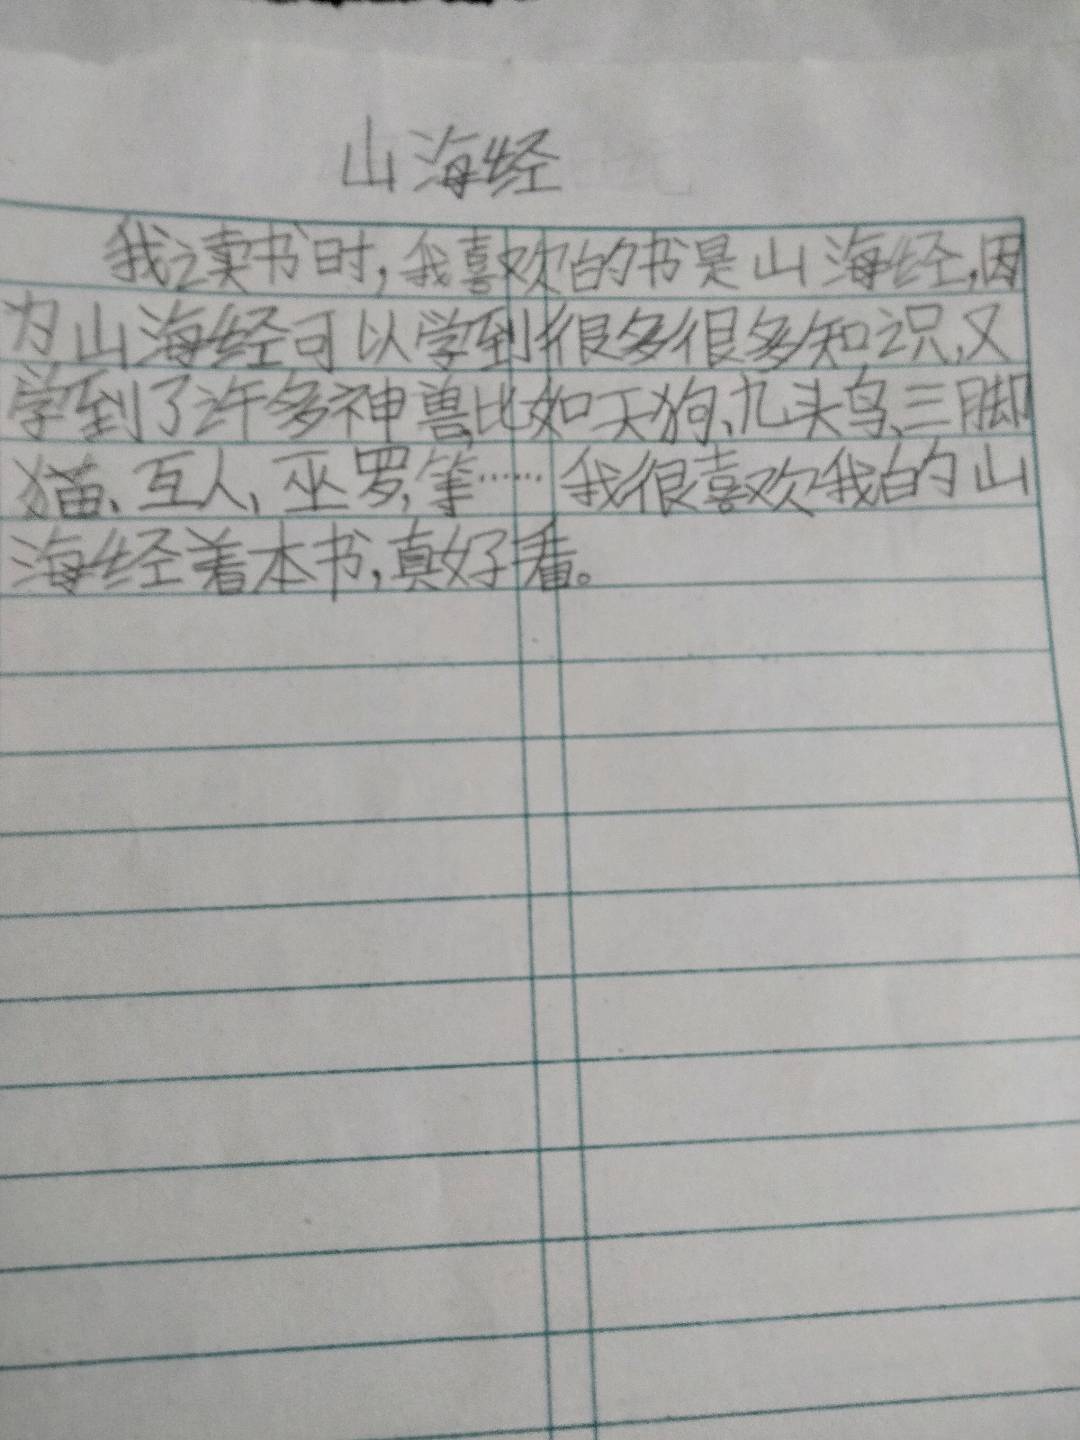 山海经
我读书时,我喜欢的书是山海经,因
为山海经可以学到很多很多知识,又
学到了许多神兽,比如天狗、九头鸟、三脚
猫、互人、巫罗,等……我很喜欢我的山
海经着本书,真好看。